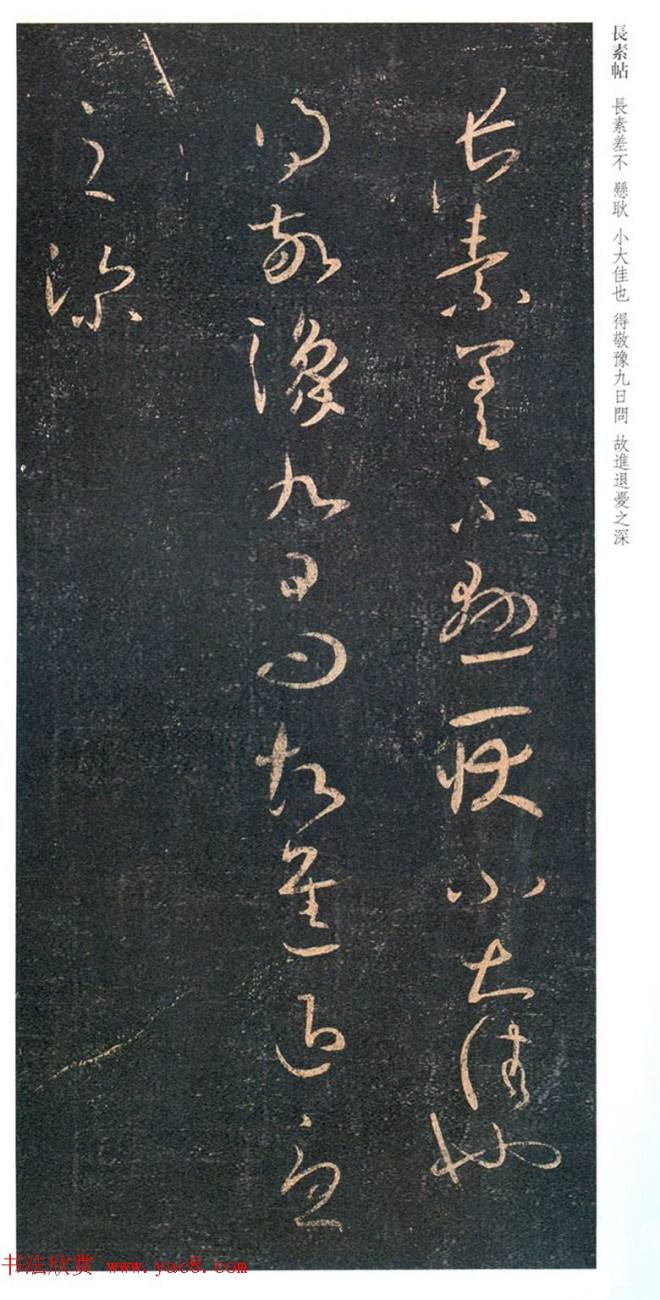 長素帖 長素差不 懸耿 小大佳也 得敬豫九日問 故進退憂之深
長素差不懸耿小大佳也
得敬豫九日問故進退憂
之深
书法欣赏 www.yac8.com